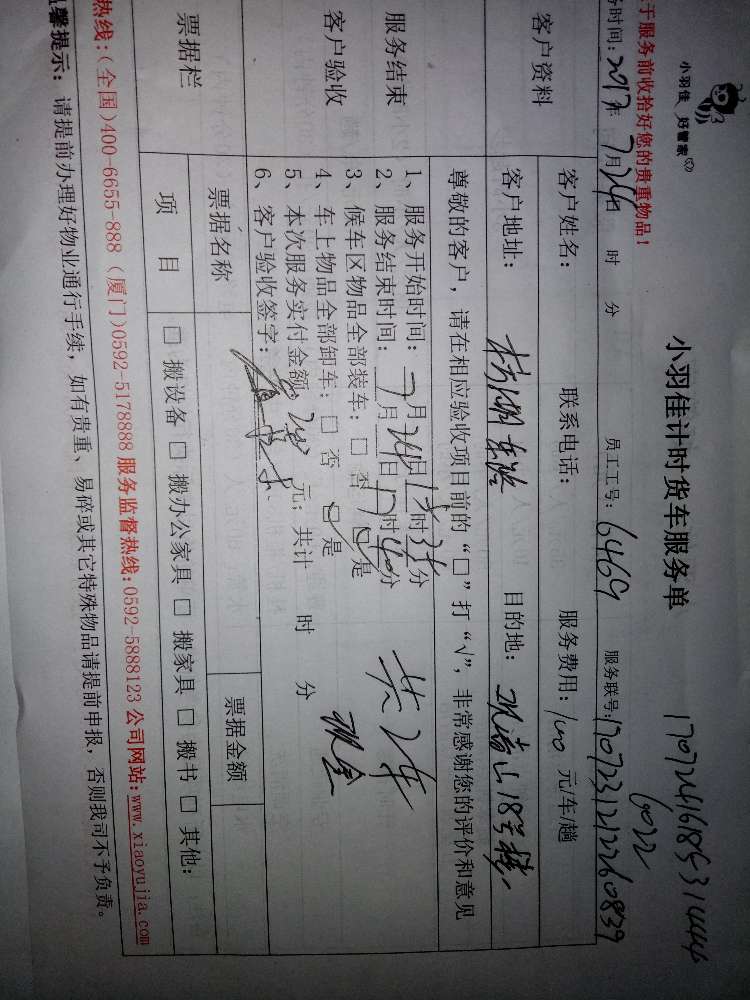 小羽佳 好管家
小羽佳计时货车服务单
1707246185314444
6022
于服务前收拾好您的贵重物品！
务时间：2017年7月24日 时 分 员工工号：6469 服务联号：1707231212260839
客户资料
客户姓名： 联系电话： 服务费用：100元/车/趟
客户地址： 目的地： 山18号楼
尊敬的客户，请在相应验收项目前的“□”打“√”，非常感谢您的评价和意见
服务结束
客户验收
1、服务开始时间：7月24日15时35分
2、服务结束时间：7月24日17时40分
共2车
3、候车区物品全部装车：□ 否 □ 是
现金
4、车上物品全部卸车：□ 否 □ 是
5、本次服务实付金额 元；共计 时 分
6、客户验收签字：
票据栏
票据名称 票据金额
项 目 □ 搬设备 □ 搬办公家具 □ 搬家具 □ 搬书 □ 其他：
热线：(全国)400-6655-888 (厦门)0592-5178888 服务监督热线：0592-5888123 公司网站：www.xiaoyujia.com
温馨提示：请提前办理好物业通行手续，如有贵重、易碎或其它特殊物品请提前申报，否则我司不予负责。